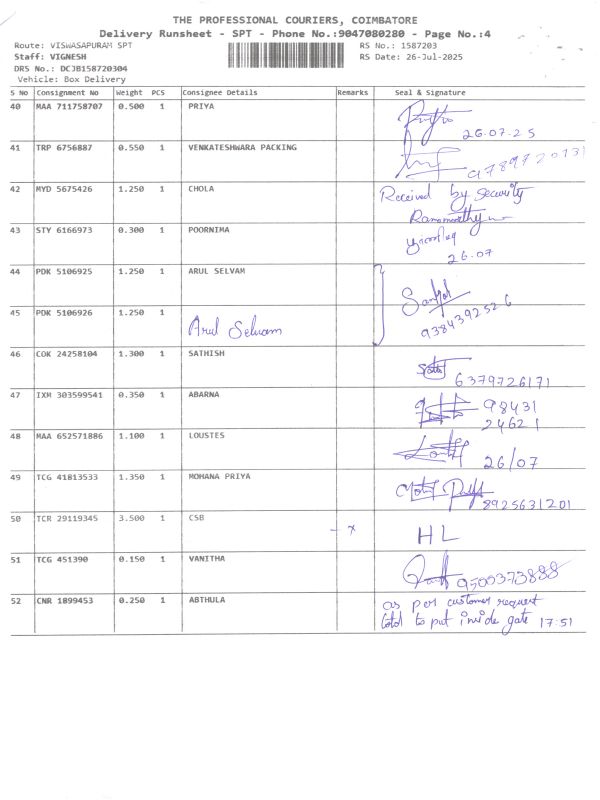 THE PROFESSIONAL COURIERS, COIMBATORE
Delivery Runsheet - SPT - Phone No.:9047080280 - Page No.:4
Route: VISWASAPURAM SPT RS No.: 1587203
Staff: VIGNESH RS Date: 26-Jul-2025
DRS No.: DCJB158720304
Vehicle: Box Delivery
S No Consignment No Weight PCS Consignee Details Remarks Seal & Signature
40 MAA 711758707 0.500 1 PRIYA
26.07.25
41 TRP 6756887 0.550 1 VENKATESHWARA PACKING
9789720131
42 MYD 5675426 1.250 1 CHOLA Received by security
43 STY 6166973 0.300 1 POORNIMA
26.07
44 PDK 5106925 1.250 1 ARUL SELVAM
45 PDK 5106926 1.250 1
Arul Selvam 9384392526
46 COK 24258104 1.300 1 SATHISH
6379726171
47 IXM 303599541 0.350 1 ABARNA 98431
24621
48 MAA 652571886 1.100 1 LOUSTES
26/07
49 TCG 41813533 1.350 1 MOHANA PRIYA
8925631201
50 TCR 29119345 3.500 1 CSB
- x HL
51 TCG 451390 0.150 1 VANITHA
9500373888
52 CNR 1899453 0.250 1 ABTHULA as per customer request
told to put inside gate 17:51